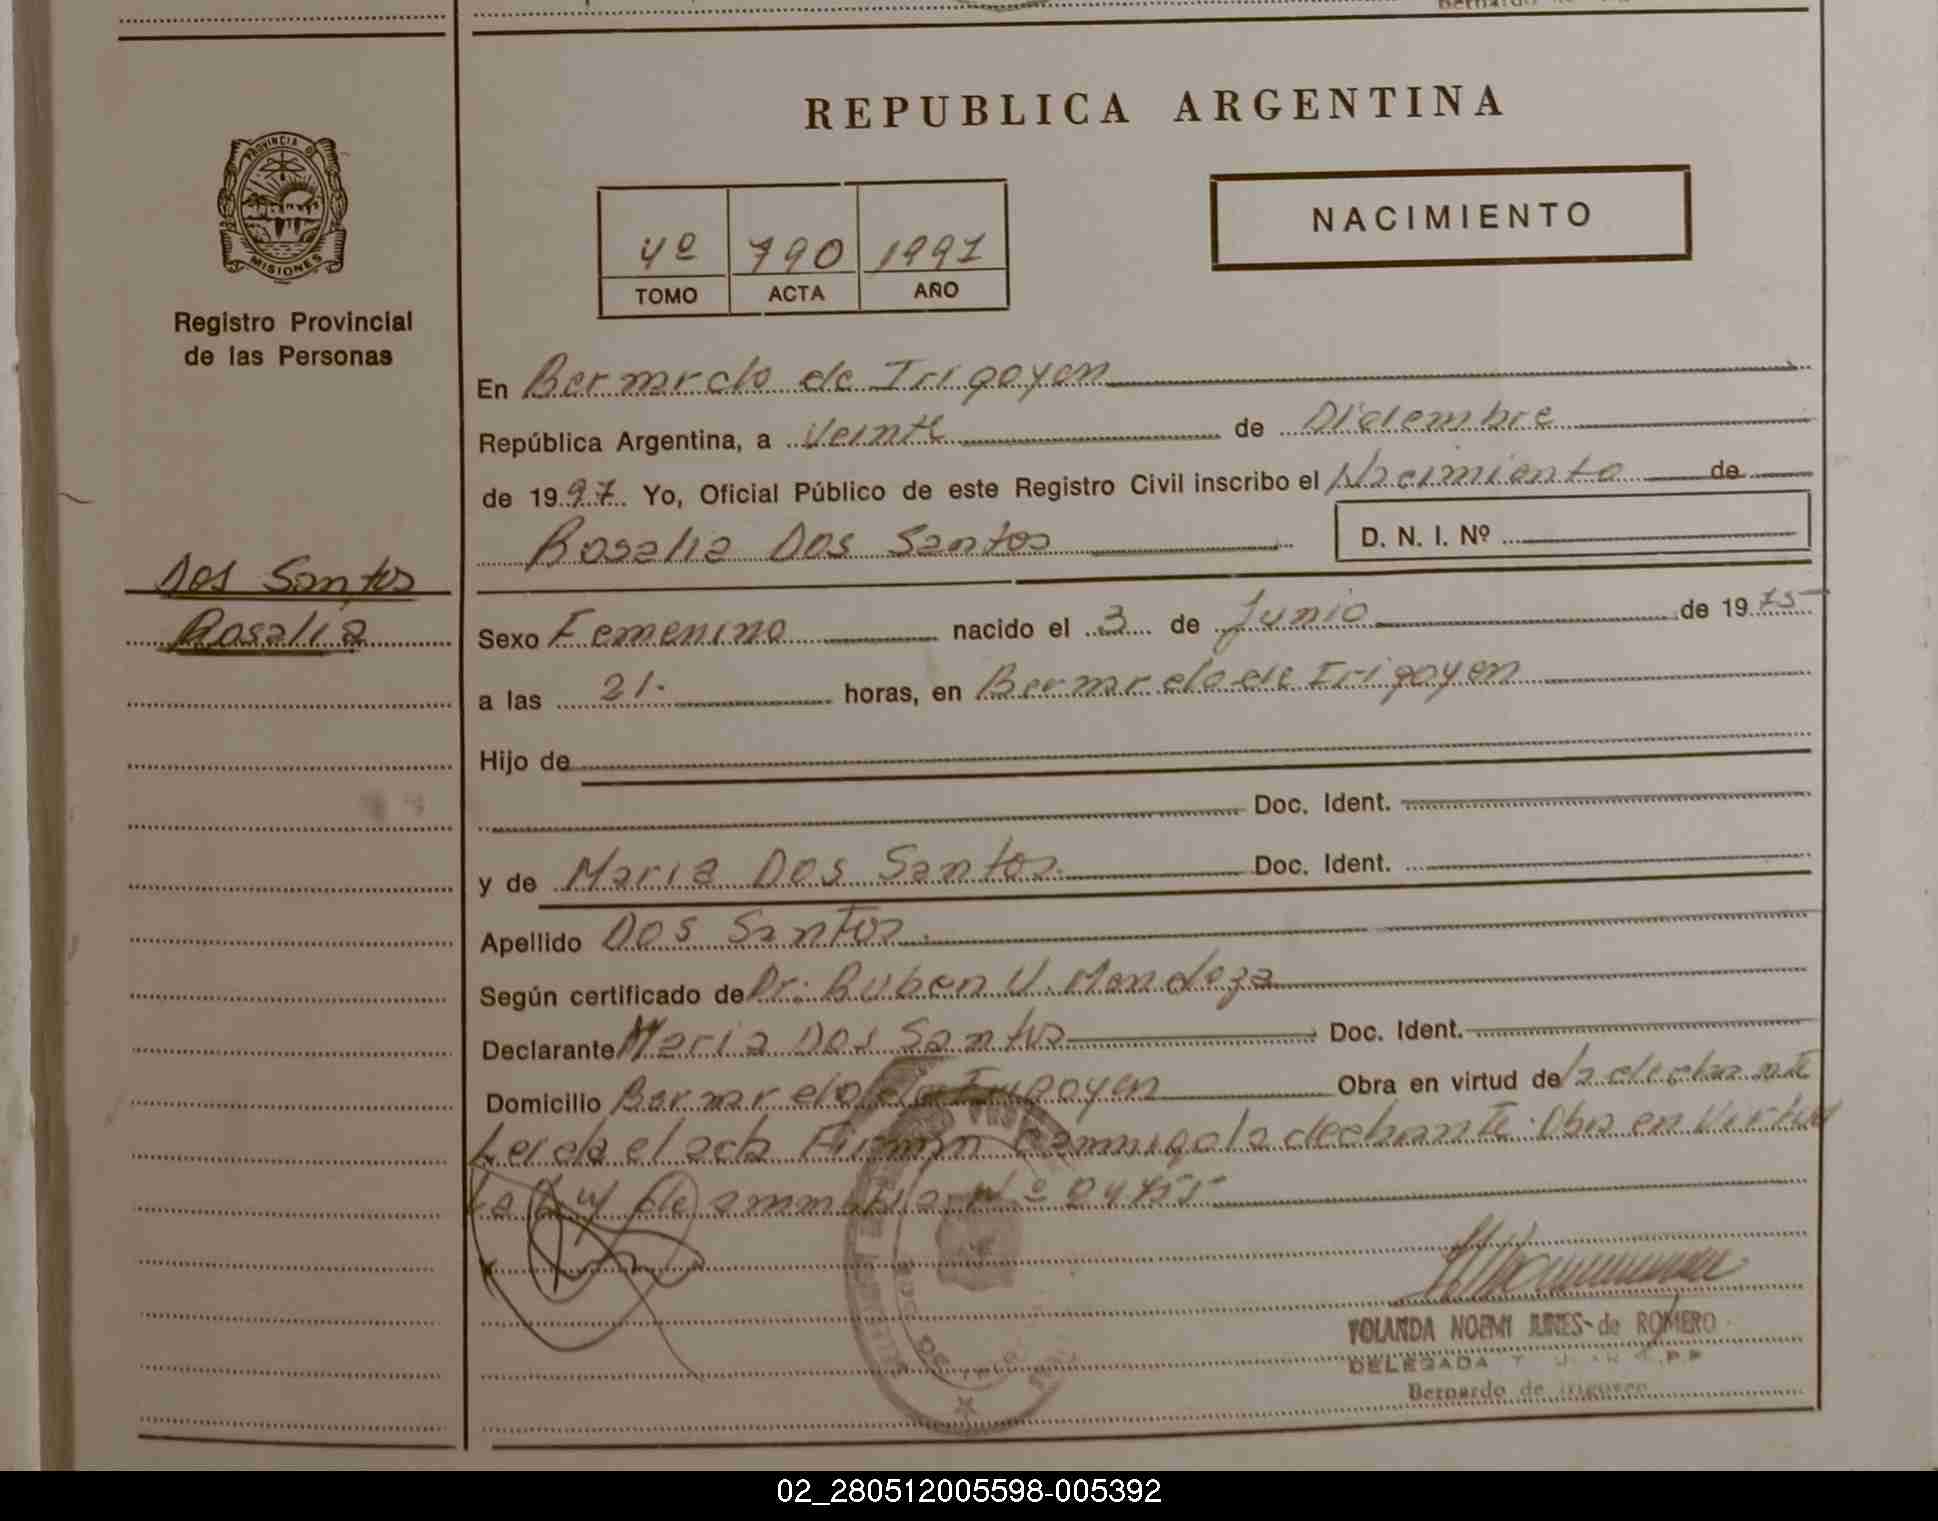 REPUBLICA ARGENTINA
PROVINCIA DE
MISIONES
Registro Provincial
de las Personas
4º 790 1997
TOMO ACTA AÑO
NACIMIENTO
En Bernardo de Irigoyen
República Argentina, a Veinte de Diciembre
de 1997 Yo, Oficial Público de este Registro Civil inscribo el Nacimiento de
Rosalia Dos Santos D. N. I. Nº
Dos Santos
Rosalia
Sexo Femenino nacido el 3 de Junio de 1975
a las 21. horas, en Bernardo de Irigoyen
Hijo de
Doc. Ident.
y de Maria Dos Santos. Doc. Ident.
Apellido Dos Santos.
Según certificado de Dr. Ruben V. Mendoza
Declarante Maria Dos Santos Doc. Ident.
Domicilio Bernardo de Irigoyen Obra en virtud de
Leida el acta Firman Obra en Virtud
Nº
YOLANDA NOEMI de ROMERO
DELEGADA
Bernardo de Irigoyen
02_280512005598-005392